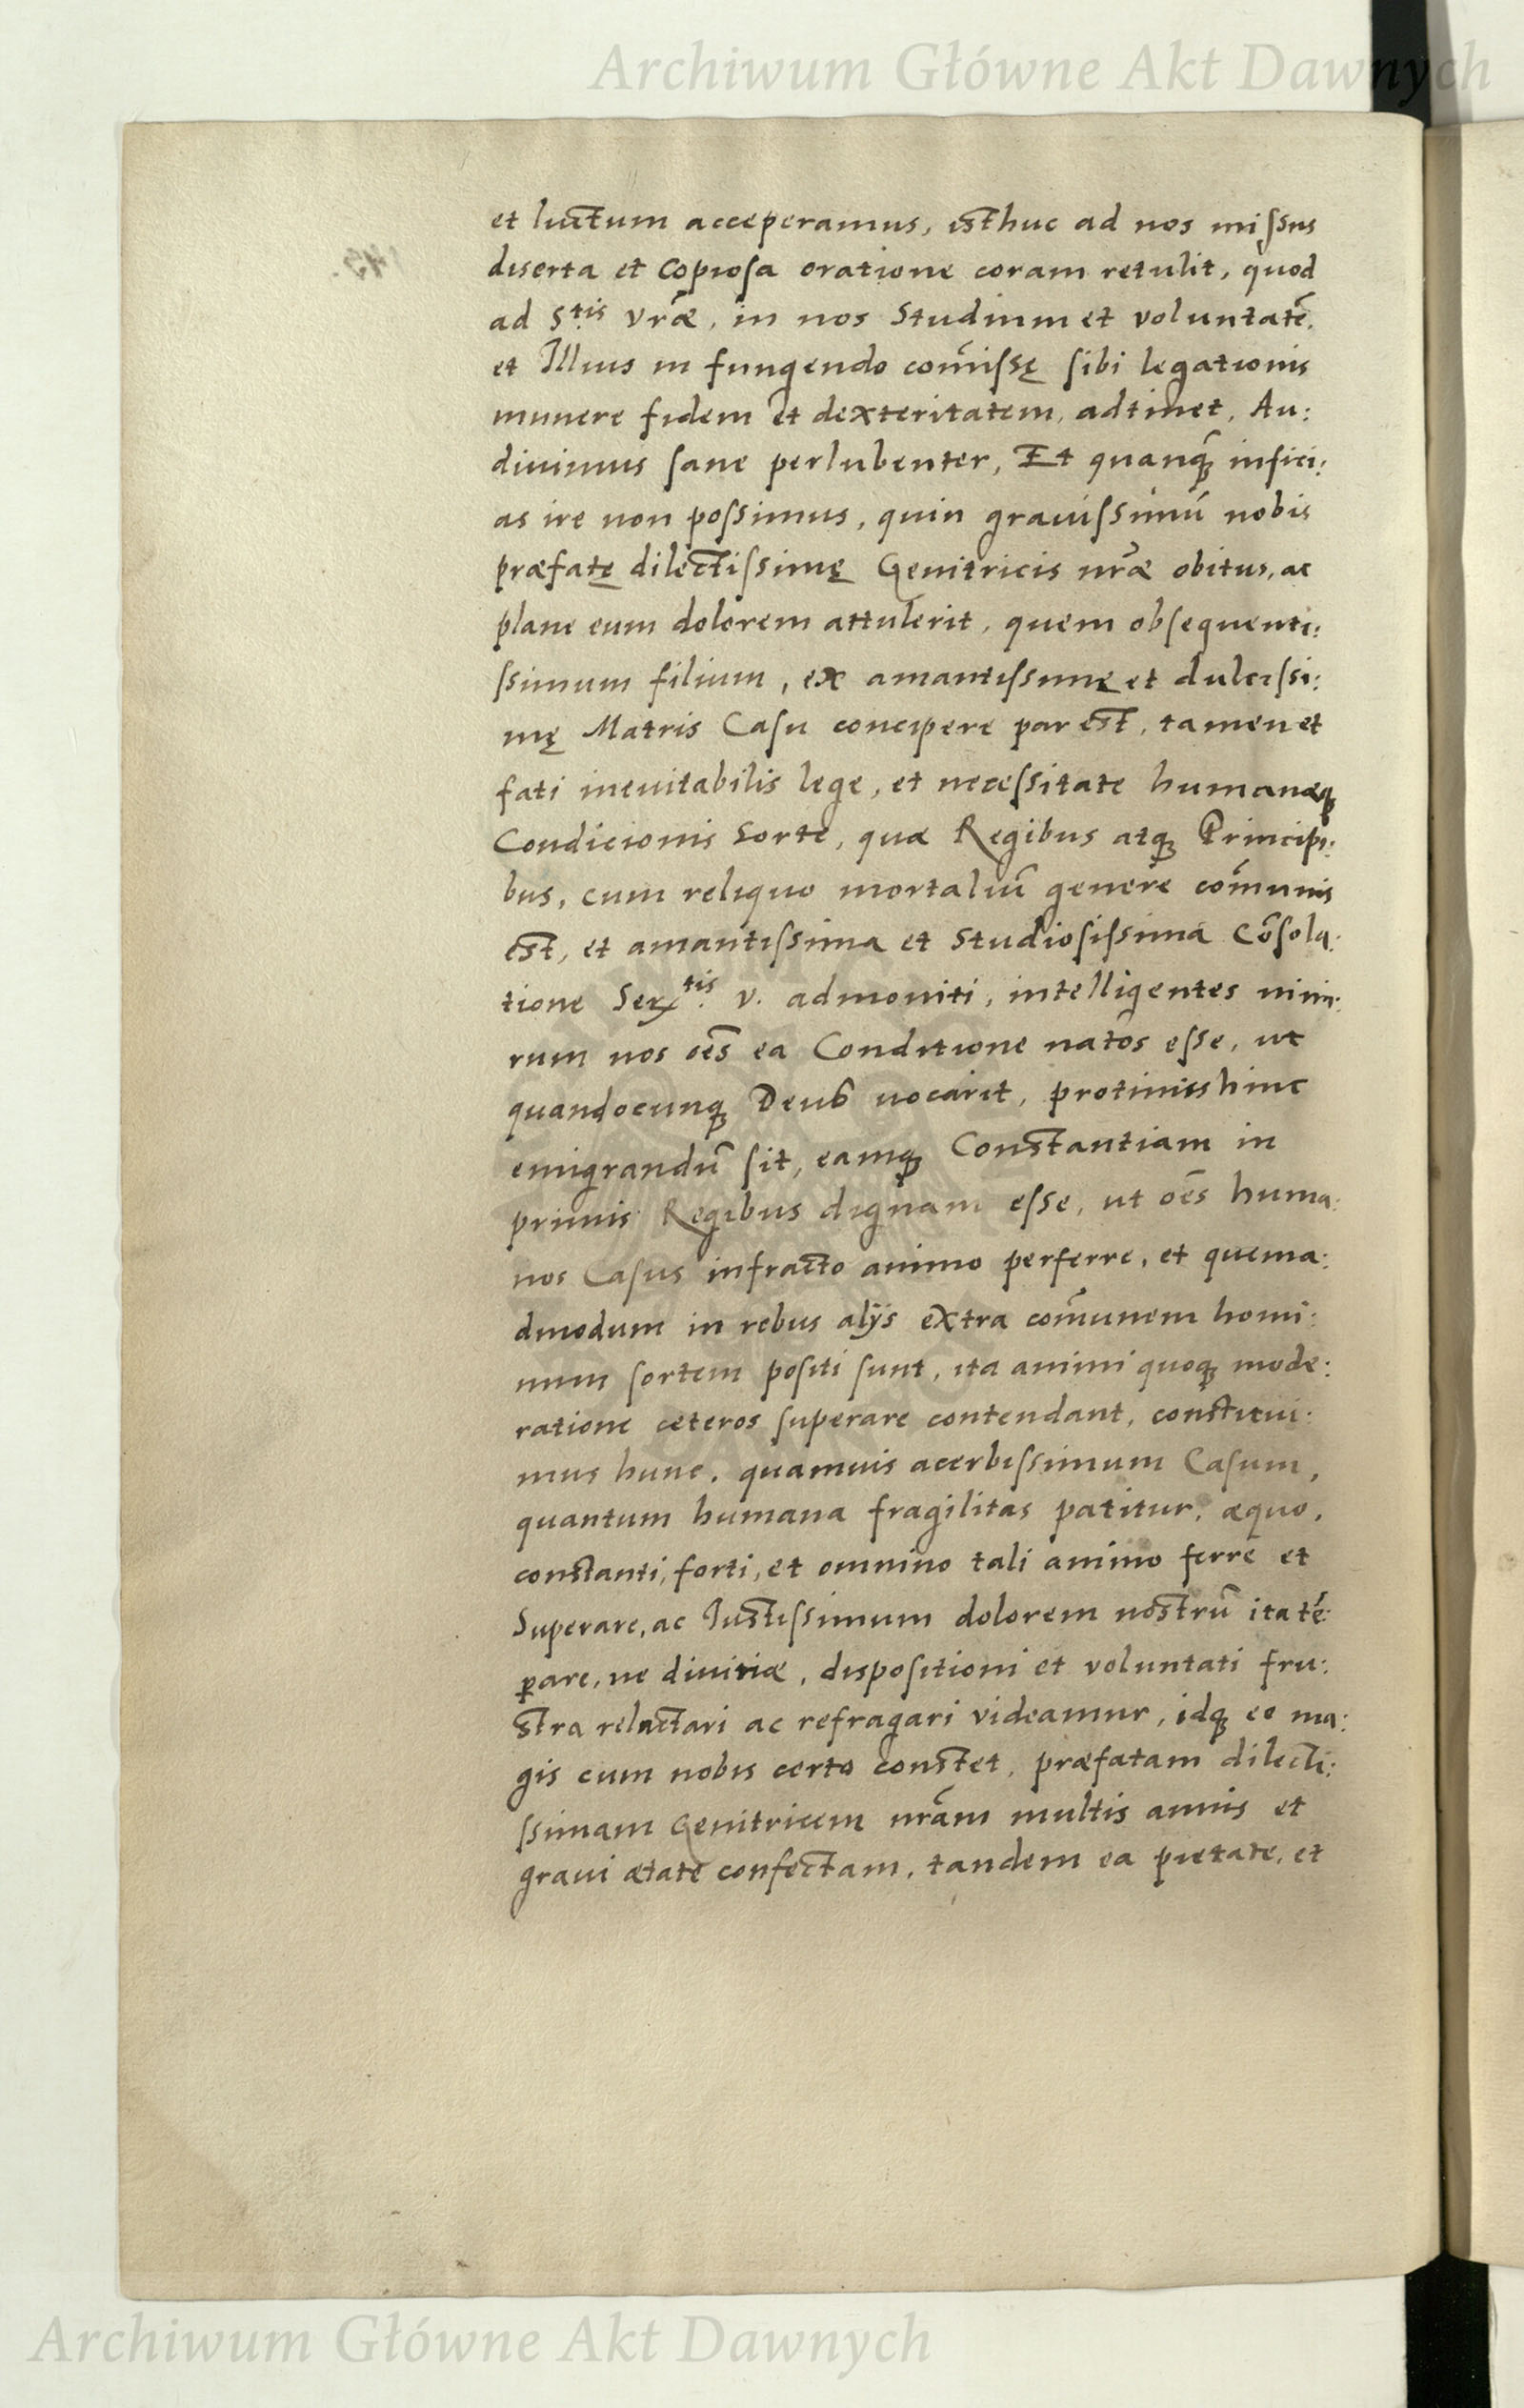 Archiwum Główne Akt Dawnych
et luctum acceperamus, isthuc ad nos missus
diserta et copiosa oratione coram retulit, quod
ad S.tis vrãe, in nos Studium et voluntatẽ,
et Illius in fungendo com̃issę sibi legationis
munere fidem et dexteritatem, adtinet, Au:
diuimus sane perlubenter, Et quanq̃ infici:
as ire non possimus, quin grauissimũ nobis
præfatę dilectissimę Genitricis nrãe obitus, ac
plane eum dolorem attulerit, quem obsequenti:
ssimum filium, ex amantissimę et dulcissi:
mę Matris Casu concipere par est, tamen et
fati ineuitabilis lege, et necessitate humanæq;
Condicionis Sorte, quæ Regibus atq; Principi:
bus, cum reliquo mortaliũ genere com̃unis
est, et amantissima et Studiosissima Cõsola:
tione Ser.tis v. admoniti, intelligentes nimi:
rum nos oẽs ea Conditione natos esse, ut
quandocunq; Deus uocarit, protinus hinc
emigrandũ sit, eamq; Constantiam in
primis Regibus dignam esse, ut oẽs huma:
nos Casus infracto animo perferre, et quema:
dmodum in rebus alijs extra com̃unem homi:
num sortem positi sunt, ita animi quoq; mode:
ratione ceteros superare contendant, constitui:
mus hunc, quamuis acerbissimum Casum,
quantum humana fragilitas patitur, æquo,
constanti, forti, et omnino tali animo ferre et
Superare, ac Iustissimum dolorem nostrũ ita tẽ:
ꝑare, ne diuinæ, dispositioni et voluntati fru:
stra reluctari ac refragari videamur, idq; eo ma:
gis cum nobis certo constet, præfatam dilecti:
ssimam Genitricem nrãm multis annis et
graui ætate confectam, tandem ea pietate, et
Archiwum Główne Akt Dawnych